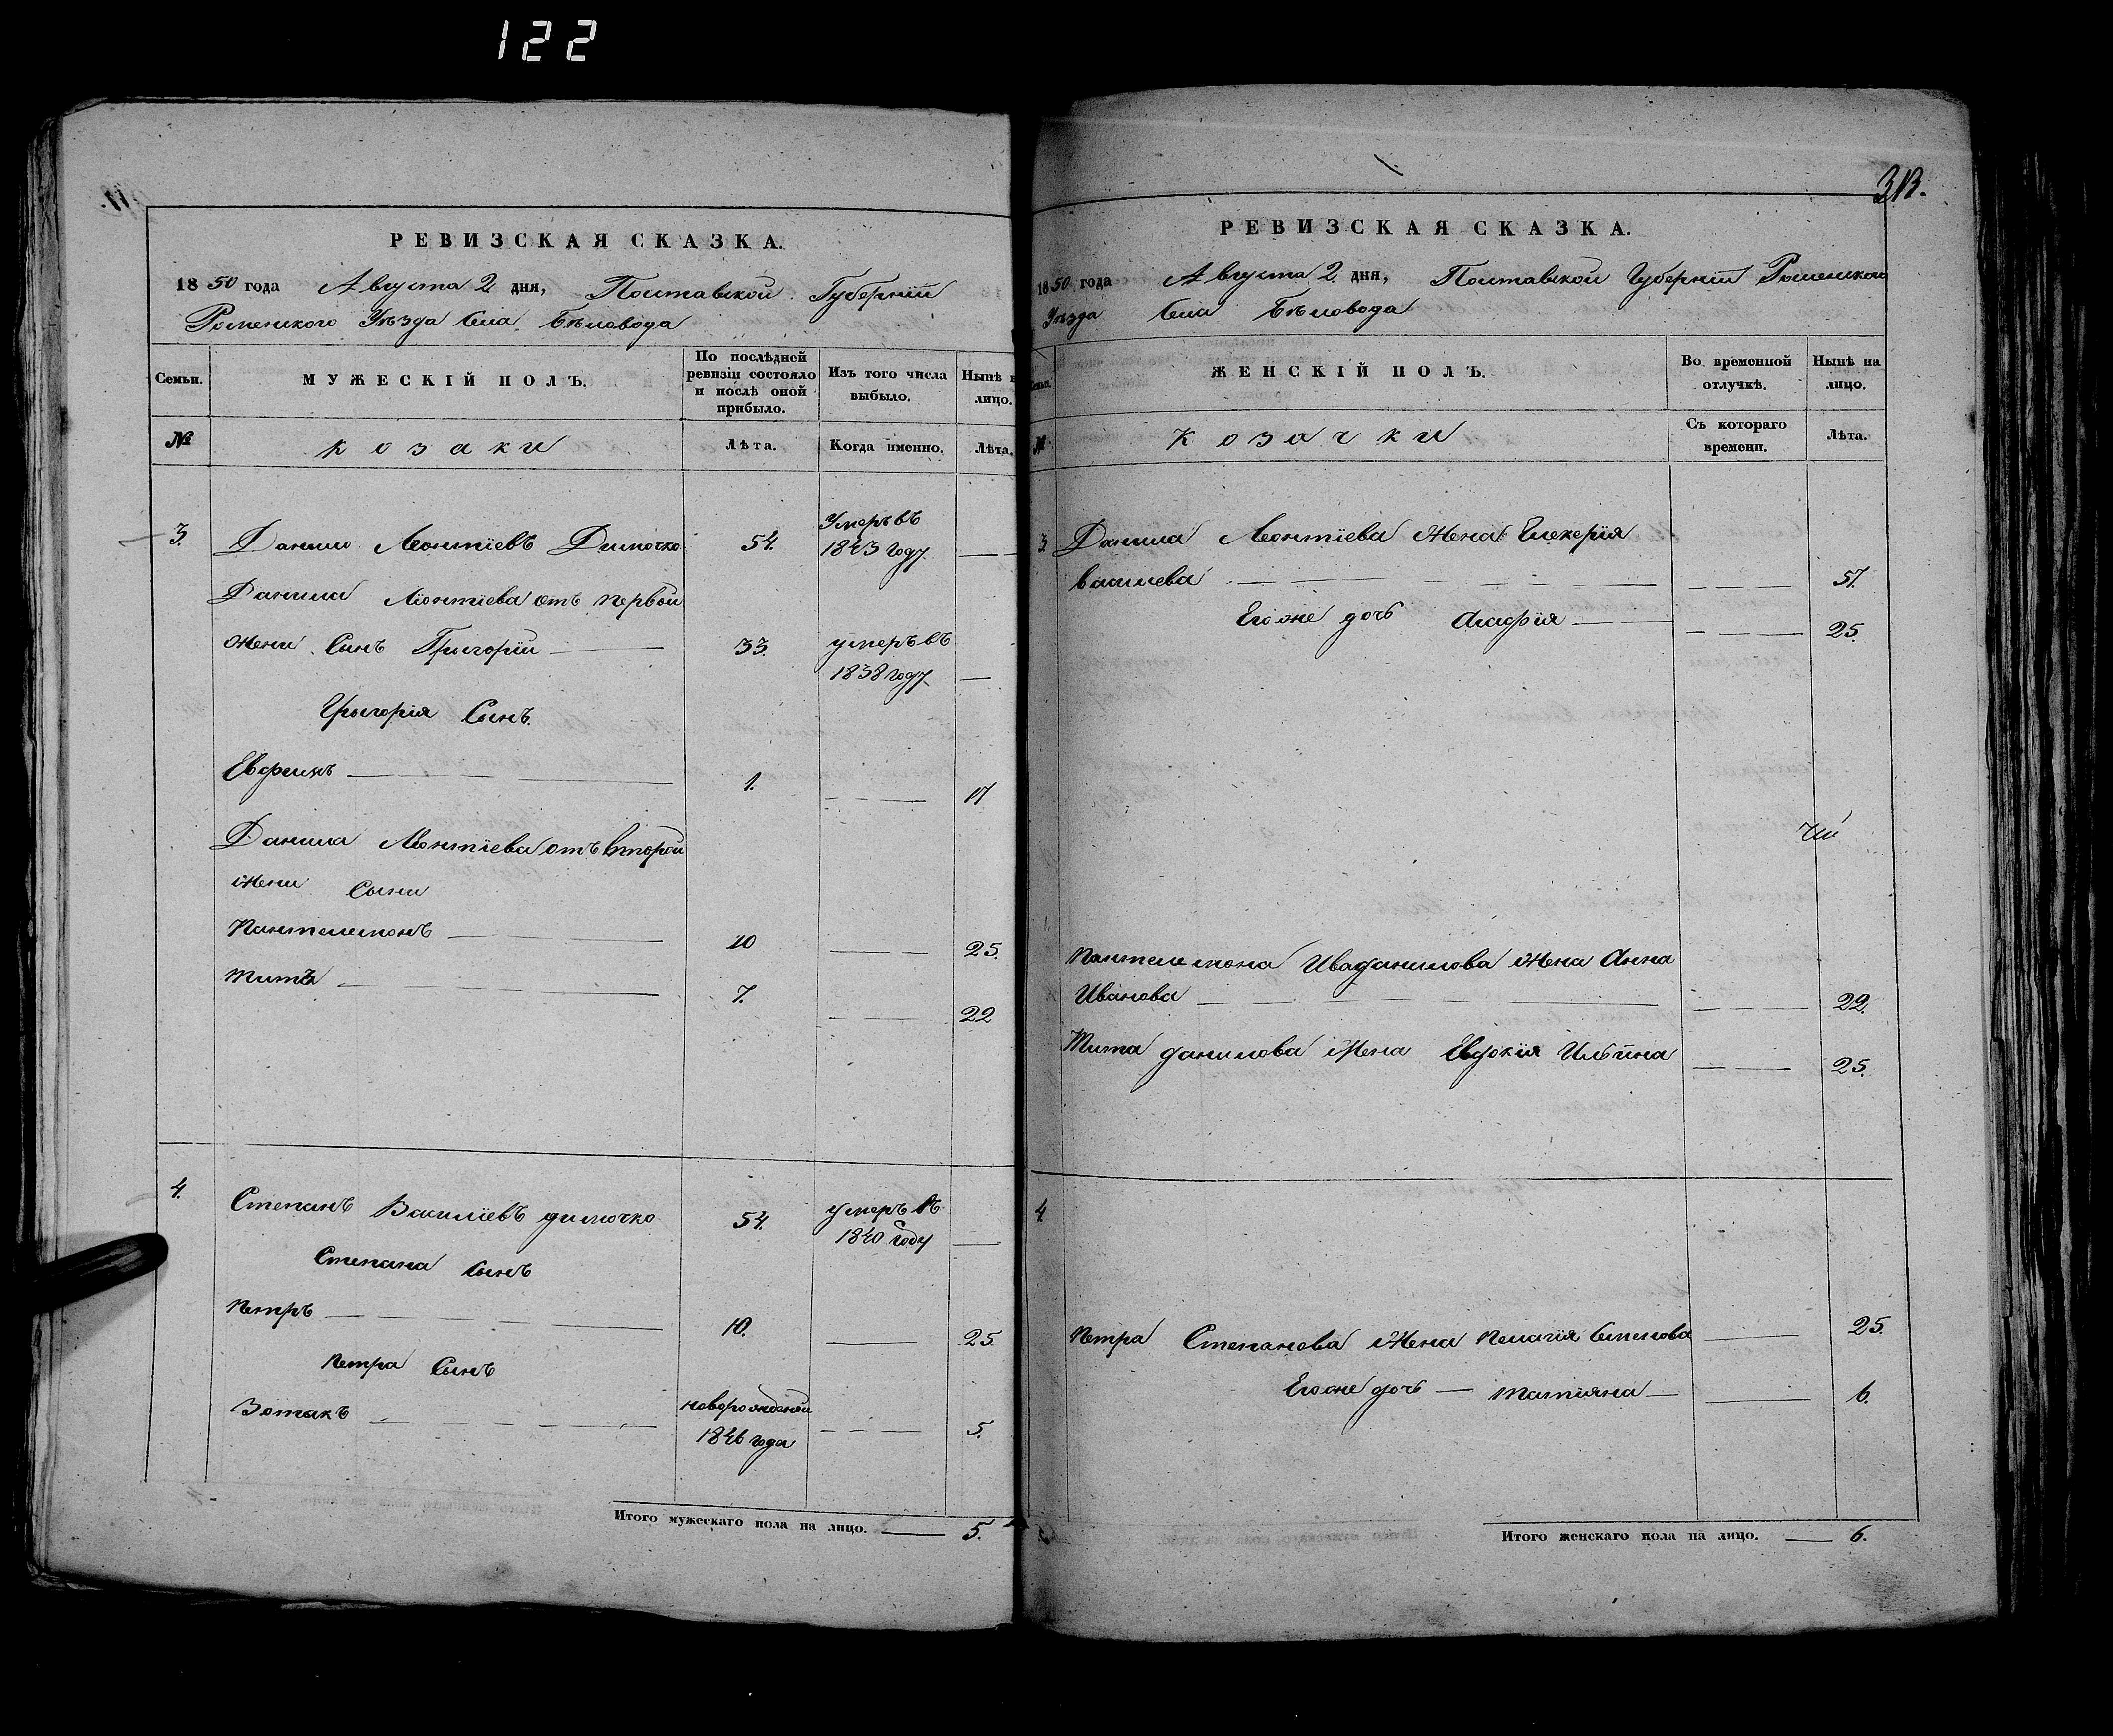 122
РЕВИЗСКАЯ СКАЗКА.
1850 года Августа 2 дня, Полтавской Губернии
Роменского Уѣзда Села Бѣловода
Семьи.
МУЖЕСКІЙ ПОЛЪ.
По послѣдней ревизіи состояло и послѣ оной прибыло.
Изъ того числа выбыло.
Нынѣ на лицо.
№
козаки
Лѣта.
Когда именно.
Лѣта.
3. Данило Леонтіевъ Димочко 54. Умеръ въ 1843 году —
Данила Леонтіева отъ первой
жени Сынъ Григорій — 33. умеръ въ 1838 году —
Григорія Сынъ
— 1. — 17
Данила Леонтіева отъ второй
жени Сыни
Пантелемонъ — 10 — 25.
Титъ — 7. — 22
4. Степанъ Василіевъ димочко 54. умеръ въ 1840 году —
Степана Сынъ
Петръ — 10. — 25.
Петра Сынъ
— новорожденый 1846 года — 5.
Итого мужескаго пола на лицо. — 5.
313.
РЕВИЗСКАЯ СКАЗКА.
1850 года Августа 2 дня, Полтавской Губерніи Роменского
Уѣзда Села Бѣловода
Семьи.
ЖЕНСКІЙ ПОЛЪ.
Во временной отлучкѣ.
Нынѣ на лицо.
№
козачки
Съ котораго времени.
Лѣта.
3. Данила Леонтіева Жена Гликерія
Василева — — 57.
Егоже дочь Агафія — — 25.
Пантелемона Данилова Жена Анна
Иванова — — 22.
Тита данилова Жена Евдокія Ильина — 25.
4
Петра Степанова Жена Пелагія — 25.
Егоже дочь — татияна — — 6.
Итого женскаго пола на лицо. — 6.